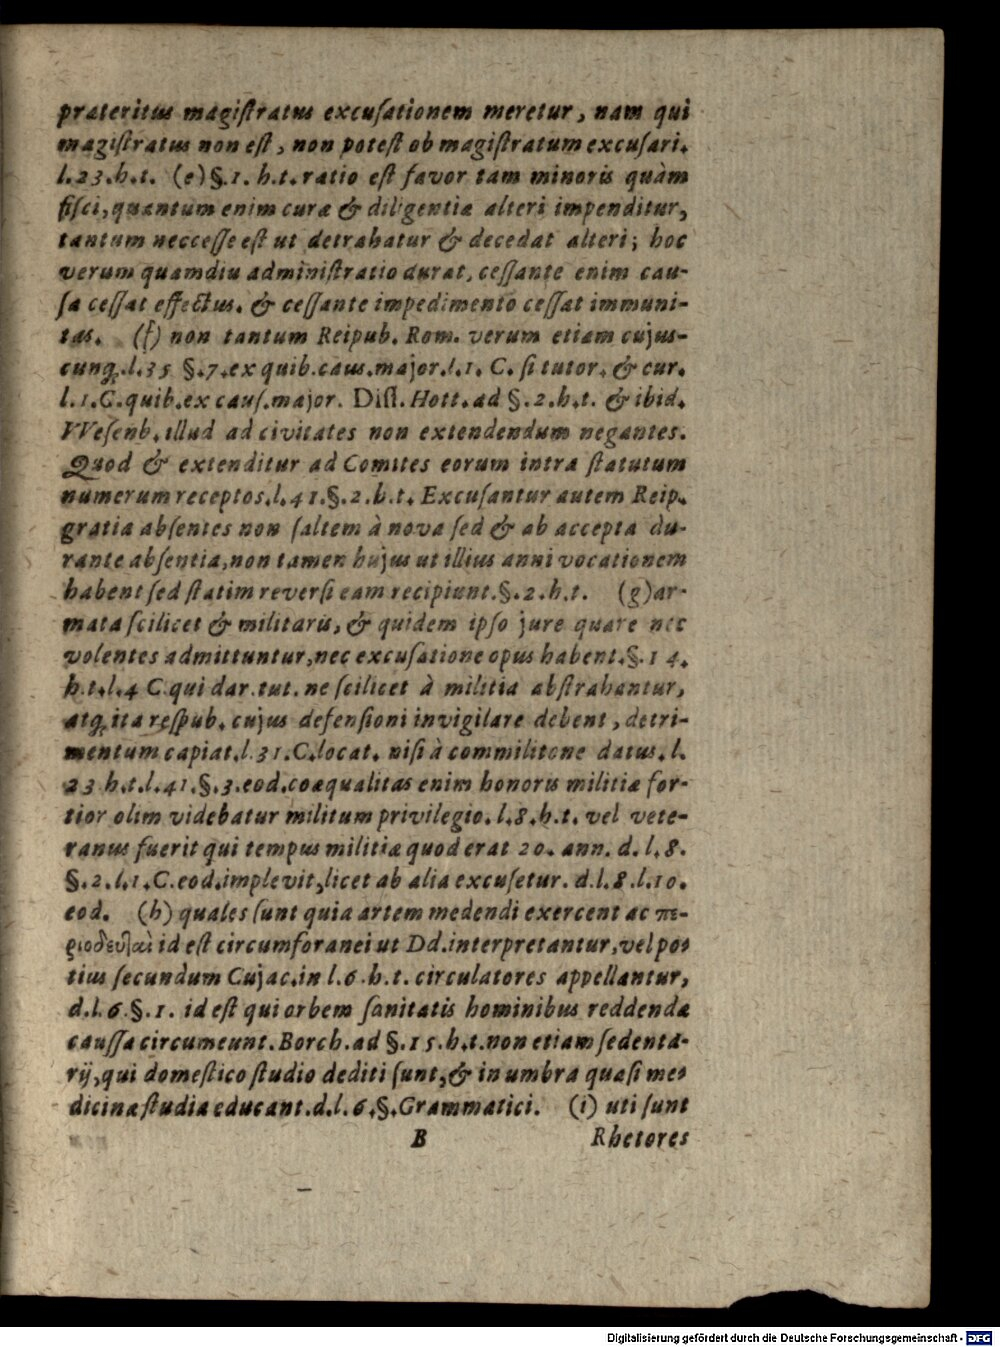 præteritus magiſtratus excuſationem meretur, nam qui
magiſtratus non eſt, non poteſt ob magiſtratum excuſari.
l.23.h.t. (e)§.1. h.t.ratio eſt favor tam minoris quàm
fiſci,quantum enim curæ & diligentiæ alteri impenditur,
tantum necceſſe eſt ut detrahatur & decedat alteri; hoc
verum quamdiu adminiſtratio durat, ceſſante enim cau-
ſa ceſſat effectus. & ceſſante impedimento ceſſat immuni-
tas. (f) non tantum Reipub. Rom. verum etiam cujus-
cunq́;.l.35 §.7.ex quib.caus.major.l.1. C. ſi tutor. & cur.
l.1.C.quib.ex cauſ.major. Diſſ. Hott.ad §.2.h.t. & ibid.
VVeſenb. illud ad civitates non extendendum negantes.
Quod & extenditur ad Comites eorum intra ſtatutum
numerum receptos.l.41.§.2.h.t. Excuſantur autem Reip.
gratia abſentes non ſaltem à nova ſed & ab accepta du-
rante abſentia,non tamen hujus ut illius anni vocationem
habent ſed ſtatim reverſi eam recipiunt.§.2.h.t. (g)ar-
mata ſcilicet & militaris, & quidem ipſo jure quare nec
volentes admittuntur,nec excuſatione opus habent.§.14.
h.t.l.4 C.qui dar.tut. ne ſcilicet à militia abſtrahantur,
atq́; ita reſpub. cujus defenſioni invigilare debent, detri-
mentum capiat.l.31.C.locat. niſi à commilitone datus. l.
23 h.t.l.41.§.3.eod.coæqualitas enim honoris militiæ for-
tior olim videbatur militum privilegio. l.8.h.t. vel vete-
ranus fuerit qui tempus militiæ quod erat 20. ann. d. l.8.
§.2.l.1.C.eod.implevit,licet ab alia excuſetur. d.l.8.l.10.
eod. (h) quales ſunt quia artem medendi exercent ac πε-
ριοδευταὶ id eſt circumforanei ut Dd.interpretantur,vel po-
tius ſecundum Cujac.in l.6.h.t. circulatores appellantur,
d.l.6.§.1. id eſt qui orbem ſanitatis hominibus reddendæ
cauſſa circumeunt. Borch.ad §.15.h.t.non etiam ſedenta-
rij,qui domeſtico ſtudio dediti ſunt,& in umbra quaſi me-
dicinæ ſtudia educant.d.l.6.§.Grammatici. (i) uti ſunt
B Rhetores
Digitalisierung gefördert durch die Deutsche Forschungsgemeinschaft - DFG